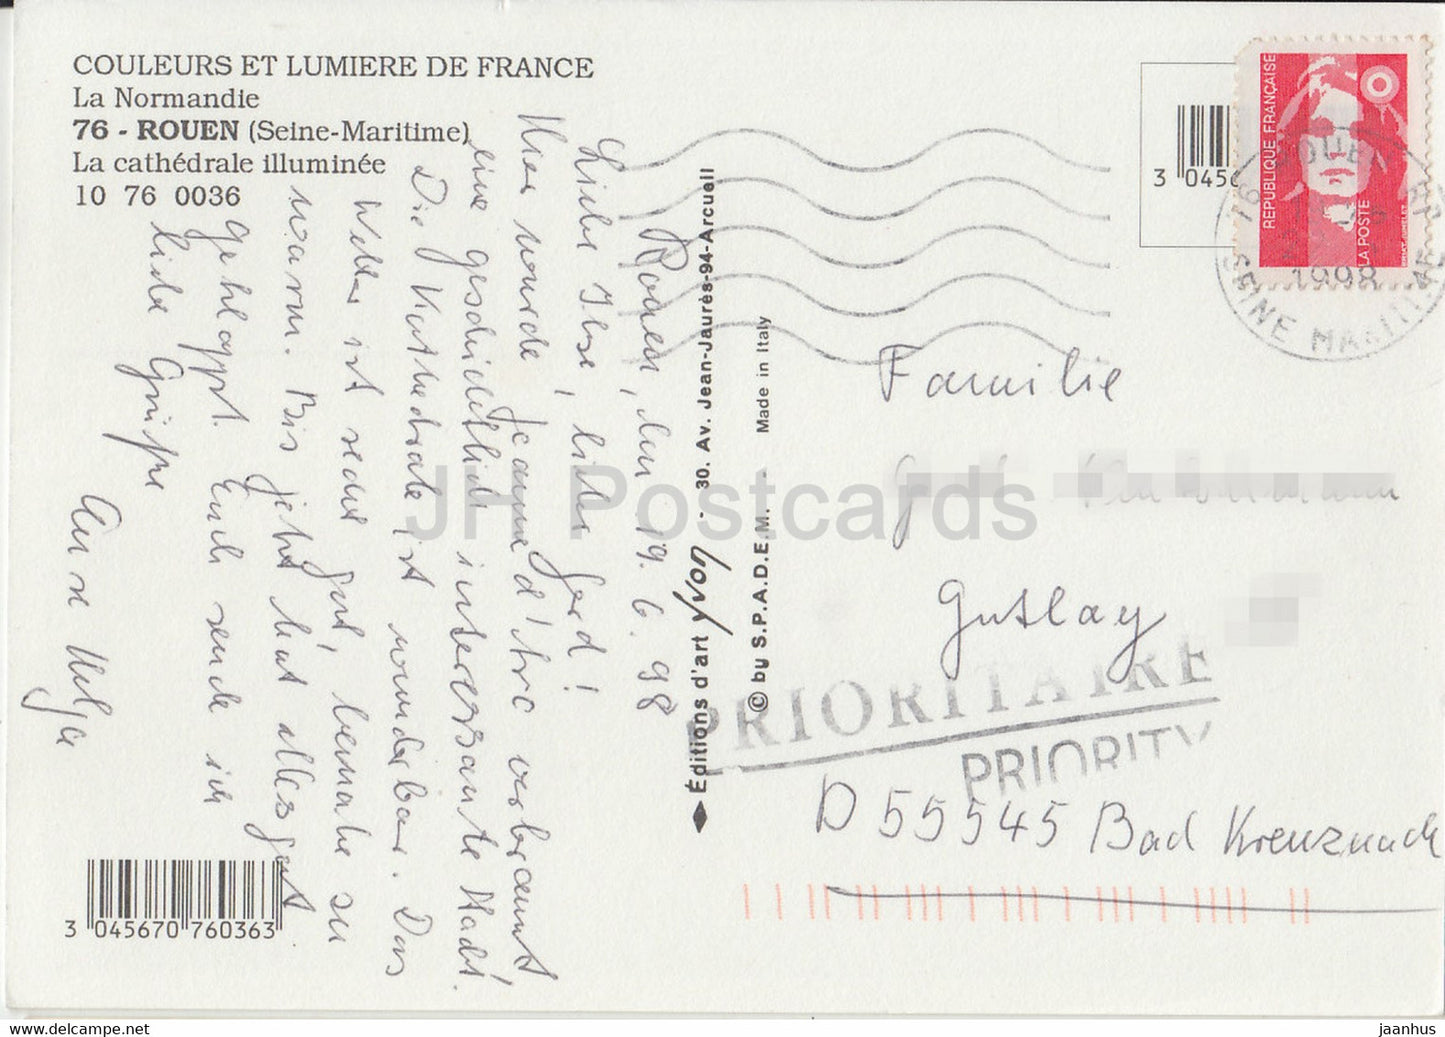 COULEURS ET LUMIERE DE FRANCE
La Normandie
76 - ROUEN (Seine-Maritime)
La cathédrale illuminée
10 76 0036
Rouen, den 19. 6. 98
Liebe Ilse, lieber Gerd!
Hier wurde Jeanne d'Arc verbrannt,
eine geschichtlich interessante Stadt.
Die Kathedrale ist wunderbar. Das
Wetter ist sehr gut, beinahe zu
warm. Bis jetzt hat alles gut
geklappt. Euch sende ich
liebe Grüße
Eure Helga
3 045670 760363
Éditions d'art Yvon - 30. Av. Jean-Jaurès-94-Arcueil
© by S.P.A.D.E.M. - Made in Italy
3 0456
RÉPUBLIQUE FRANÇAISE
LA POSTE
76 ROUEN
1998
SEINE MARITIME
Familie
Gutlay
PRIORITAIRE
PRIORITY
D 55545 Bad Kreuznach
JH Postcards
www.delcampe.net
jaanhus